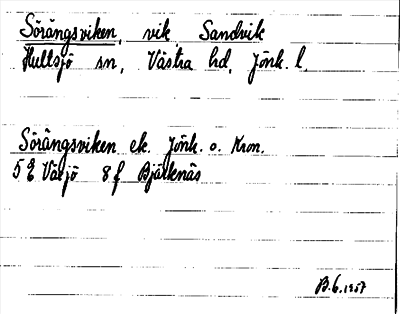 Sörängsviken, vik, Sandvik
Hultsjö sn, Västra hd, Jönk. l.
Sörängsviken ek. Jönk. o. Kron.
5 g Växjö 8 f Bjälknäs
B.6.1957